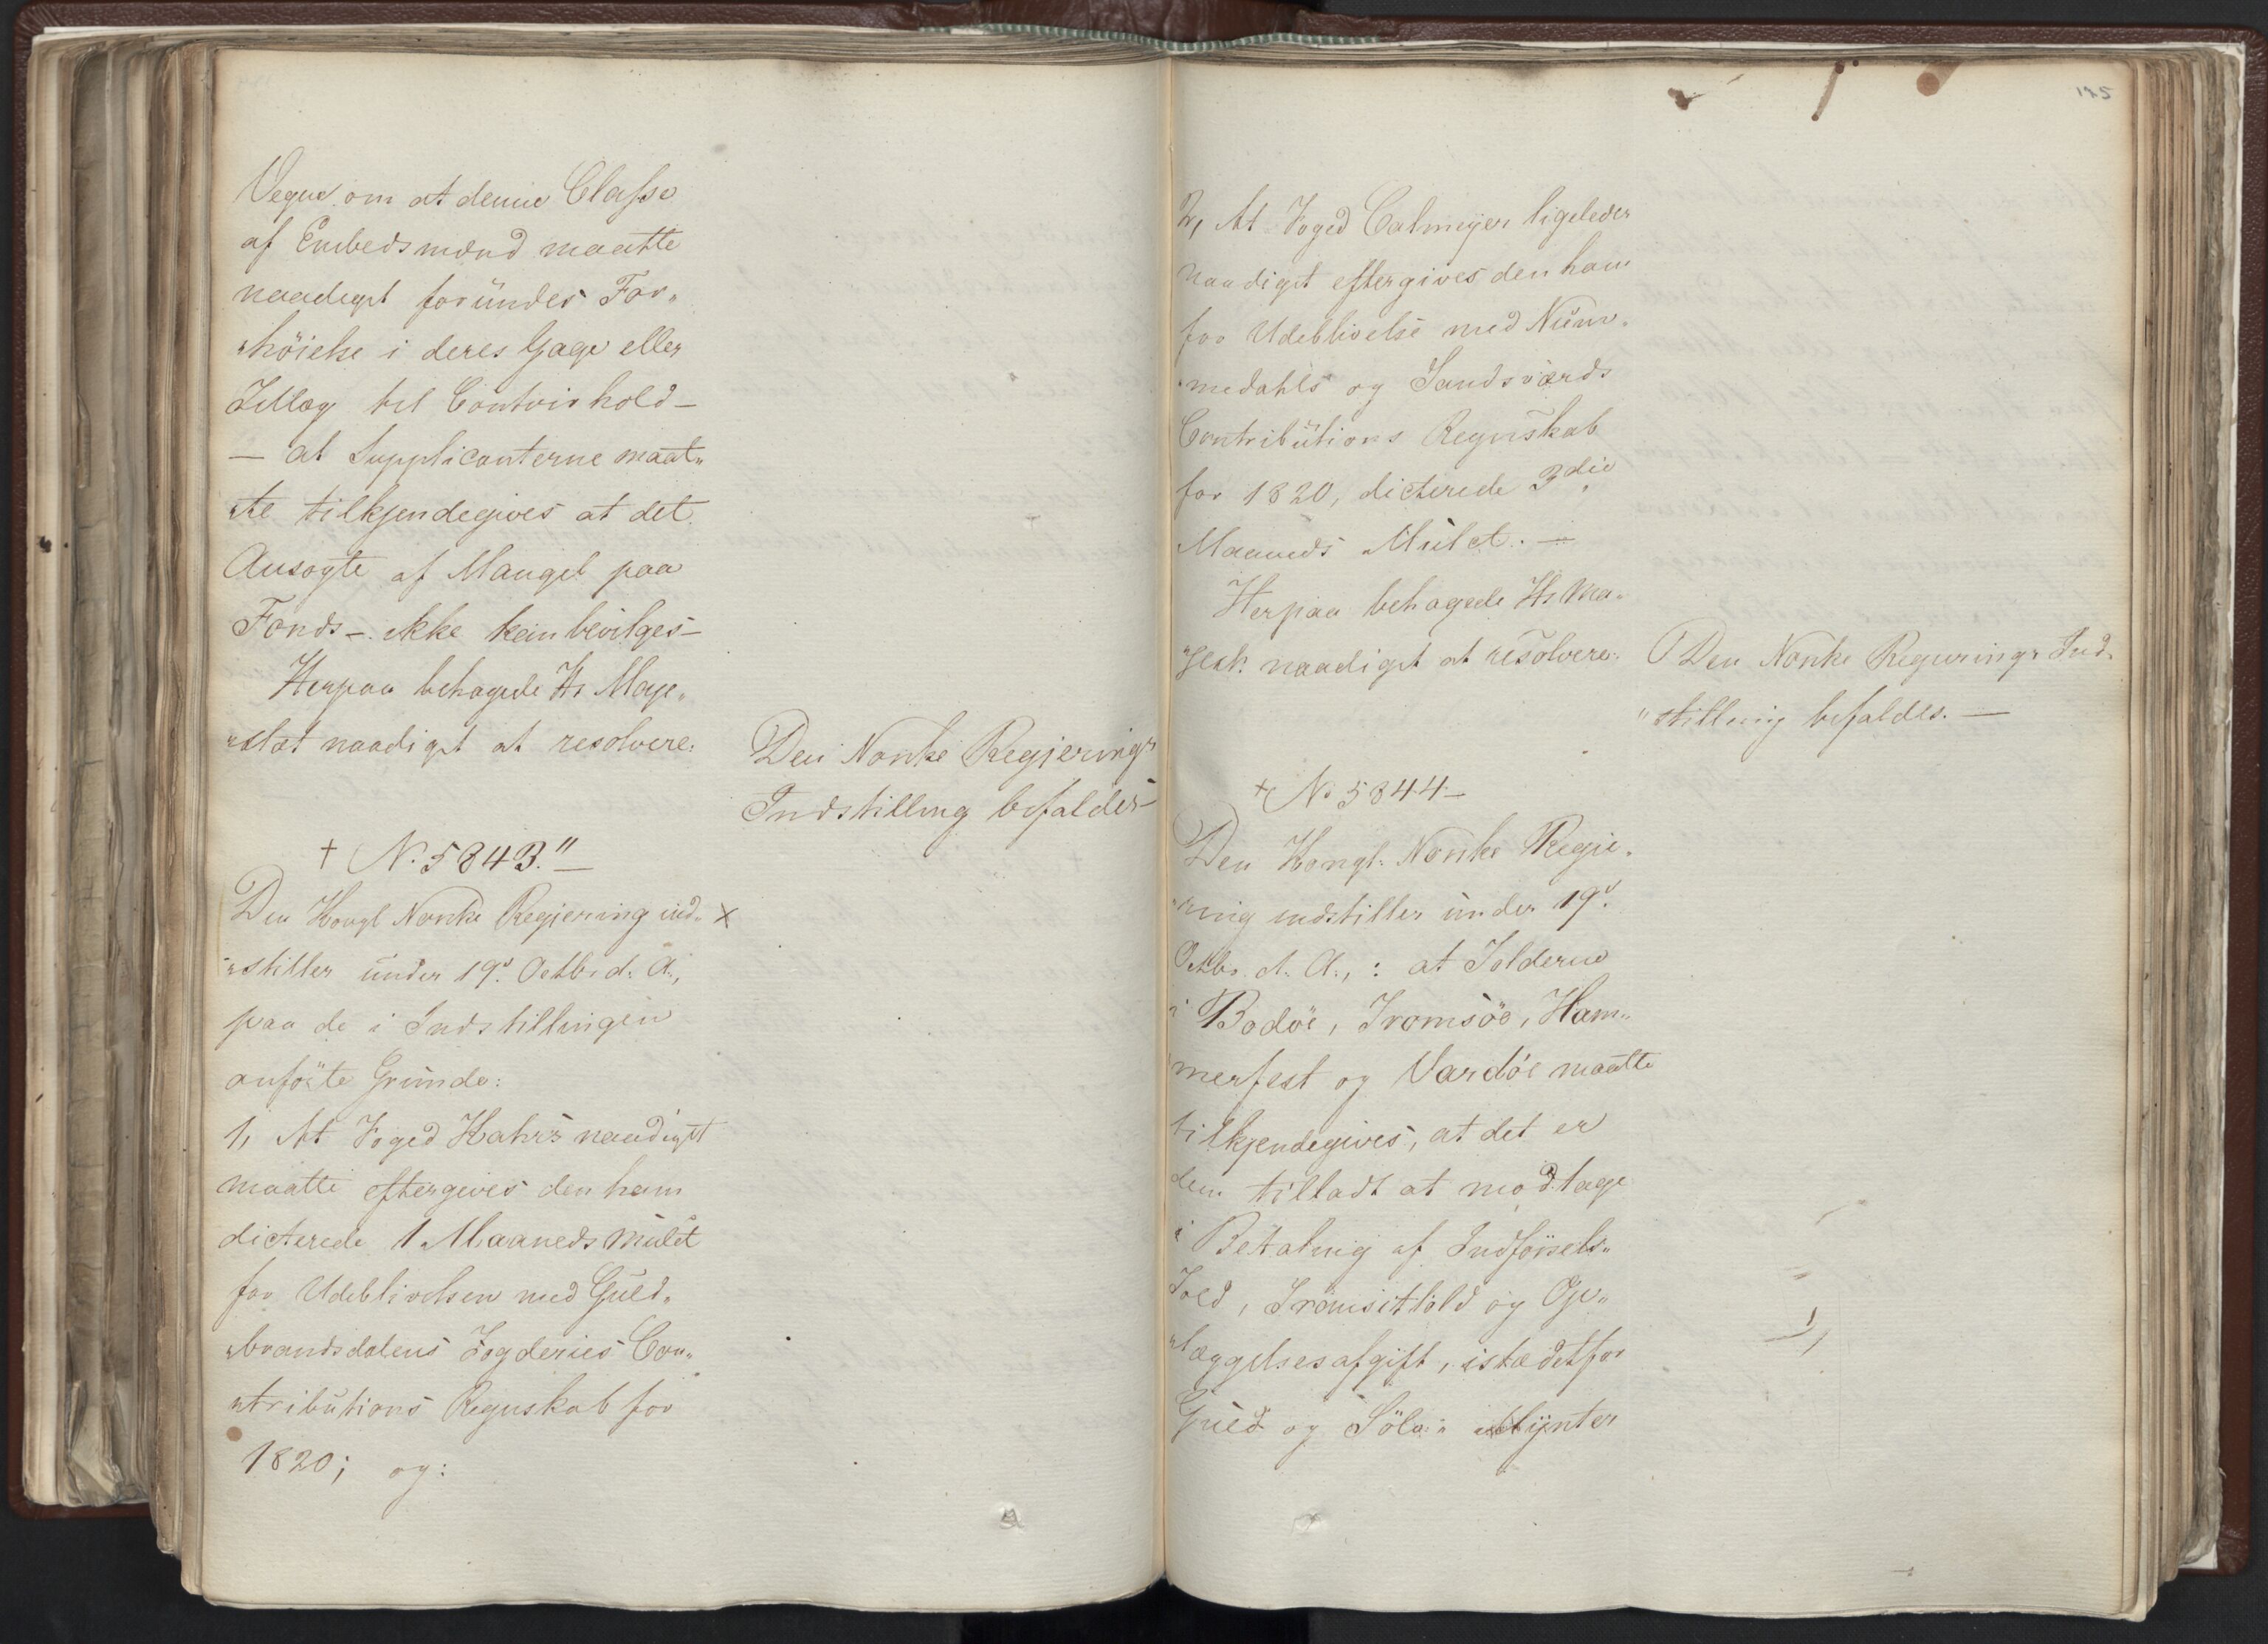 Vegne om at denne Classe
af Embedsmænd maatte
naadigst forundes For„
„höielse i deres Gage eller
Tillæg til Contoirhold –
– at Supplicanterne maat„
„te tilkjendegives at det
Ansøgte af Mangel paa
Fonds – ikke kan bevilges –
Herpaa behagede Hs Maje„
„stæt naadigst at resolvere:
Den Norske Regjerings
Indstilling bifaldes –
† No 5843." –
Den Kongl Norske Regjering ind„ x
„stiller under 19d. Octbr d. A.,
paa de i Indstillingen
anförte Grunde:
1, At Foged Hahrs naadigst
maatte eftergives den ham
dicterede 1 Maaneds Mulct
for Udeblivelsen med Guld„
„brandsdalens Fogderies Con„
„tributions Regnskab for
1820; og:
125
2, At Foged Calmeijer ligeledes
naadigst eftergives den ham
for Udeblivelse med Num„
„medahls og Sandsværds
Contributions Regnskab
for 1820, dicterede 3die
Maaneds Mulct. –
Herpaa behagede Hs Ma„
„jest: naadigst at resolvere:
Den Norske Regjerings Ind„
„stilling bifaldes. –
† No 5844 –
Den Kongl: Norske Regje„
„ring indstiller under 19d.
Octbr d. A., : at Tolderne
i Bodöe, Tromsöe, Ham„
„merfest og Vardöe maatte
tilkjendegives, at det er
dem tilladt at modtage
i Betaling af Indförsels„
Told, Transittold og Op„
„læggelsesafgift, istædetfor
Guld og Sölv„ Mÿnter